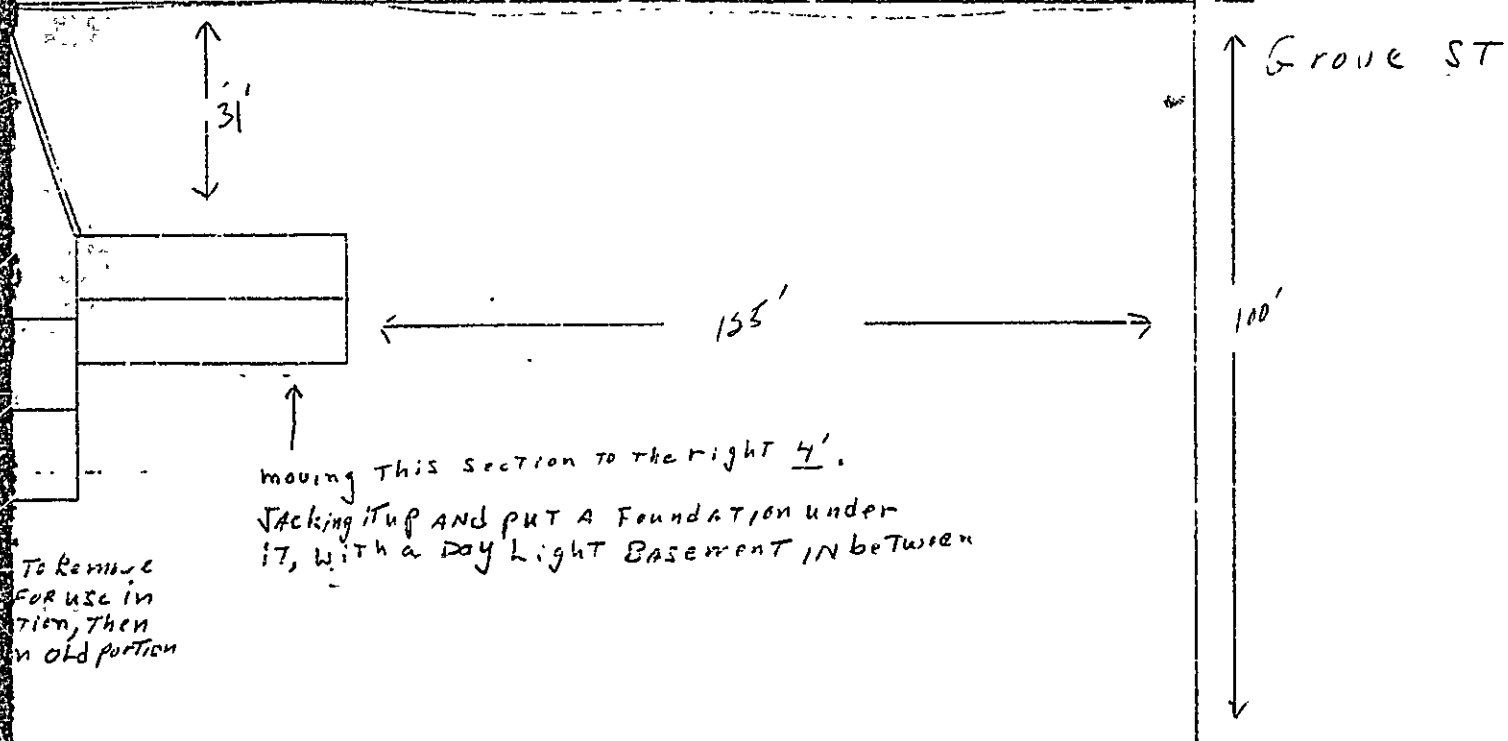 Grove ST
31'
155'
100'
moving This section To the right 4'.
JAcking iT up AND puT A FoundATion under
iT, wiTh a Day Light BAsement IN beTween
To Remove
FOR use in
Tion, Then
n old portion